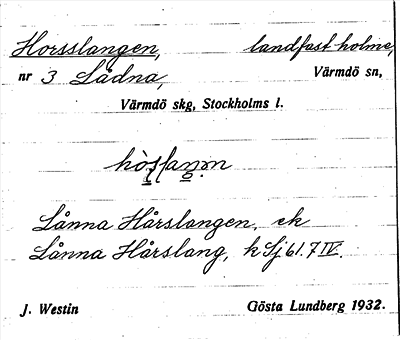 Horsslangen, landfast holme,
nr 3 Lådna, Värmdö sn,
Värmdö skg, Stockholms l.
Lånna Hårslangen, ek
Lånna Hårslang, k Sj 61. 7 IV.
J. Westin Gösta Lundberg 1932.